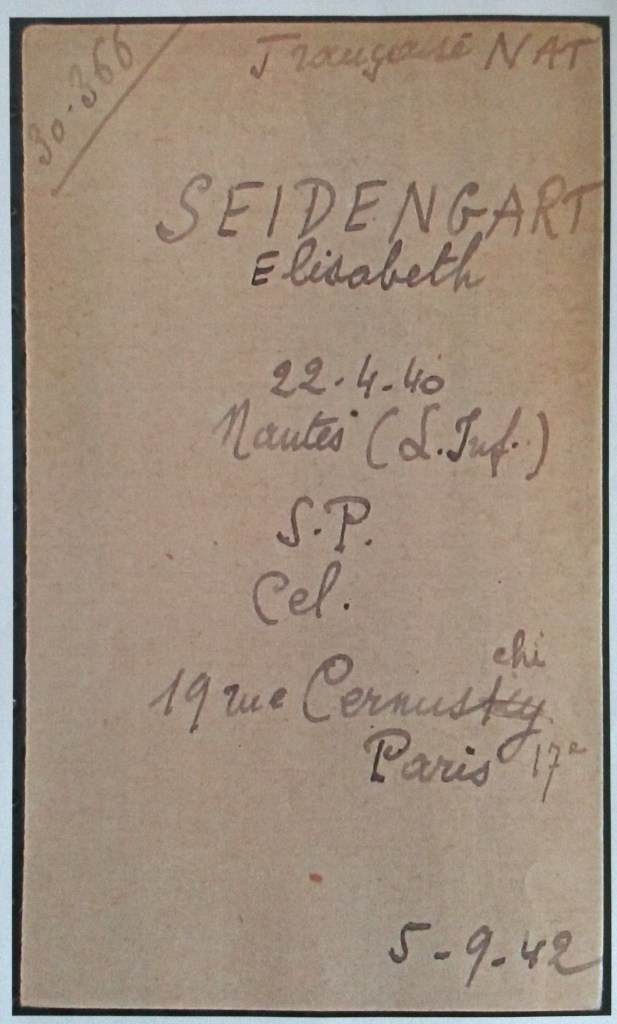 30-366
Française NAT
SEIDENGART
Elisabeth
22-4-40
Nantes (L.Inf.)
S.P.
Cel.
chi
19 rue Cernusky
Paris 17e
5-9-42